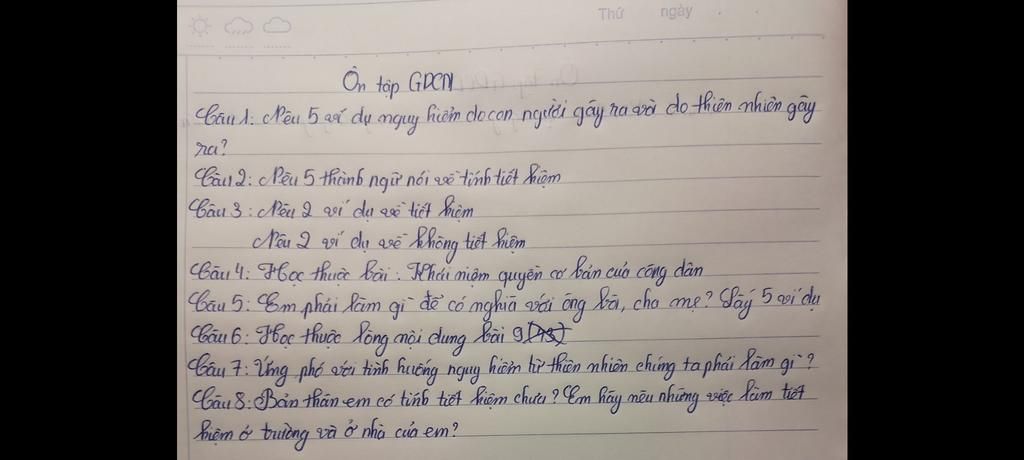 Thứ ngày
Ôn tập GDCD
Câu 1: Nêu 5 ví dụ nguy hiểm do con người gây ra và do thiên nhiên gây
ra?
Câu 2: Nêu 5 thành ngữ nói về tính tiết kiệm
Câu 3: Nêu 2 ví dụ về tiết kiệm
Nêu 2 ví dụ về không tiết kiệm
Câu 4: Học thuộc bài: Khái niệm quyền cơ bản của công dân
Câu 5: Em phải làm gì để có nghĩa với ông bà, cha mẹ? Lấy 5 ví dụ
Câu 6: Học thuộc lòng nội dung bài 9
Câu 7: Ứng phó với tình huống nguy hiểm từ thiên nhiên chúng ta phải làm gì?
Câu 8: Bản thân em có tính tiết kiệm chưa? Em hãy nêu những việc làm tiết
kiệm ở trường và ở nhà của em?